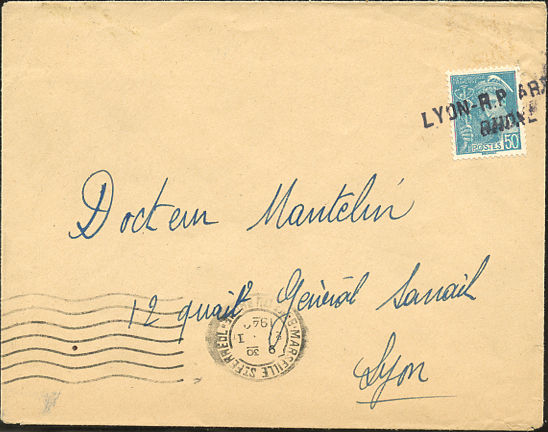 LYON-R.P. AR
RHONE
POSTES 50
Docteur Mantelin
12 quai Général Sarrail
Lyon
MARSEILLE ST FERREOL
9 30
1
194